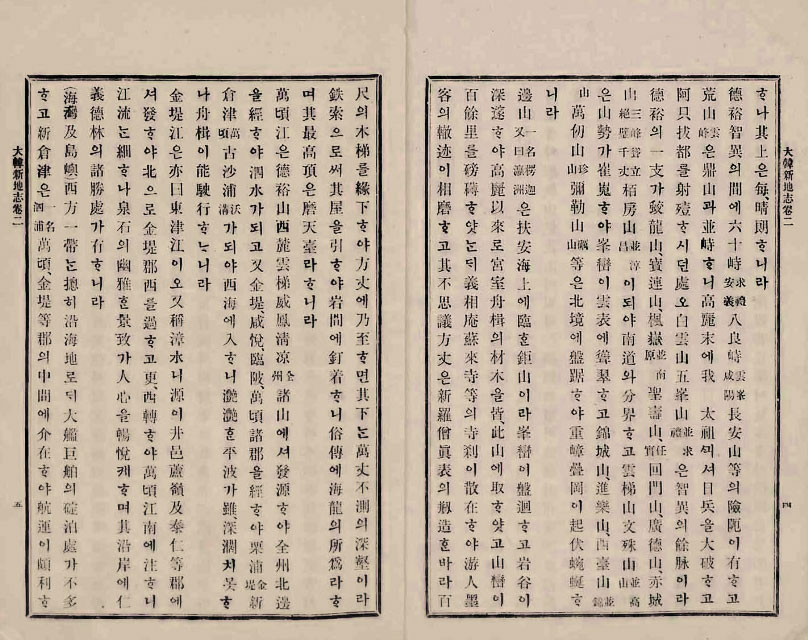 ᄒᆞ나其上은每晴朗ᄒᆞ니라
德裕智異의間에六十峙求禮安義八良峙雲峯咸陽長安山等의險阨이有ᄒᆞ고
荒山雲峰은鼎山과並峙ᄒᆞ니高麗末에我 太祖ᄭᅴ셔日兵을大破ᄒᆞ고
阿只拔都를射殪ᄒᆞ시던處오白雲山五峯山並求禮은智異의餘脉이라
德裕의一支가蛟龍山、寶連山、楓嶽並南原聖壽山、任實回門山、廣德山、赤城
山三峰聳立絕壁千丈栢房山並淳昌이되야南道와分界ᄒᆞ고雲梯山文殊山並高山
은山勢가崔嵬ᄒᆞ야峯巒이雲表에聳翠ᄒᆞ고錦城山、進樂山、西臺山並錦山
萬仞山珍山彌勒山礪山等은北境에盤踞ᄒᆞ야重嶂疊岡이起伏蜿蜒ᄒᆞ
니라
邊山一名楞迦又曰瀛洲은扶安海上에臨ᄒᆞᆫ鉅山이라峯巒이盤迴ᄒᆞ고岩谷이
深邃ᄒᆞ야高麗以來로宮室舟楫의材木을皆此山에取ᄒᆞ얏고山巒이
百餘里를磅礴ᄒᆞ얏ᄂᆞᆫᄃᆡ義相庵蘇來寺等의寺刹이散在ᄒᆞ야游人墨
客의轍迹이相磨ᄒᆞ고其不思議方丈은新羅僧眞表의剙造ᄒᆞᆫ바라百
大韓新地志卷二
四
尺의木梯를緣下ᄒᆞ야方丈에乃至ᄒᆞ면其下ᄂᆞᆫ萬丈不測의深壑이라
鉄索으로써其屋을引ᄒᆞ야岩間에釘着ᄒᆞ니俗傳에海龍의所爲라ᄒᆞ
며其最高頂은磨天臺라ᄒᆞ니라
萬頃江은德裕山西麓雲梯威鳳淸凉全州諸山에셔發源ᄒᆞ야全州北邊
을經ᄒᆞ야泗水가되고又金堤、咸悅、臨陂、萬頃諸郡을經ᄒᆞ야栗浦金堤新
倉津萬頃古沙浦沃溝가되야西海에入ᄒᆞ니灔灔ᄒᆞᆫ平波가雖深濶치못ᄒᆞ
나舟楫이能駛行ᄒᆞᄂᆞ니라
金堤江은亦曰東津江이오又稱漳水니源이井邑蘆嶺及泰仁等郡에
셔發ᄒᆞ야北으로金堤郡西를過ᄒᆞ고更、西轉ᄒᆞ야萬頃江南에注ᄒᆞ니
江流ᄂᆞᆫ細ᄒᆞ나泉石의幽雅ᄒᆞᆫ景致가人心을暢悅케ᄒᆞ며其沿岸에仁
義德林의諸勝處가有ᄒᆞ니라
(海灣及島嶼西方一帶ᄂᆞᆫ摠히沿海地로ᄃᆡ大艦巨舶의碇泊處가不多
ᄒᆞ고新倉津은一名泗浦萬頃、金堤等郡의中間에介在ᄒᆞ야航運이頗利ᄒᆞ
大韓新地志卷二
五